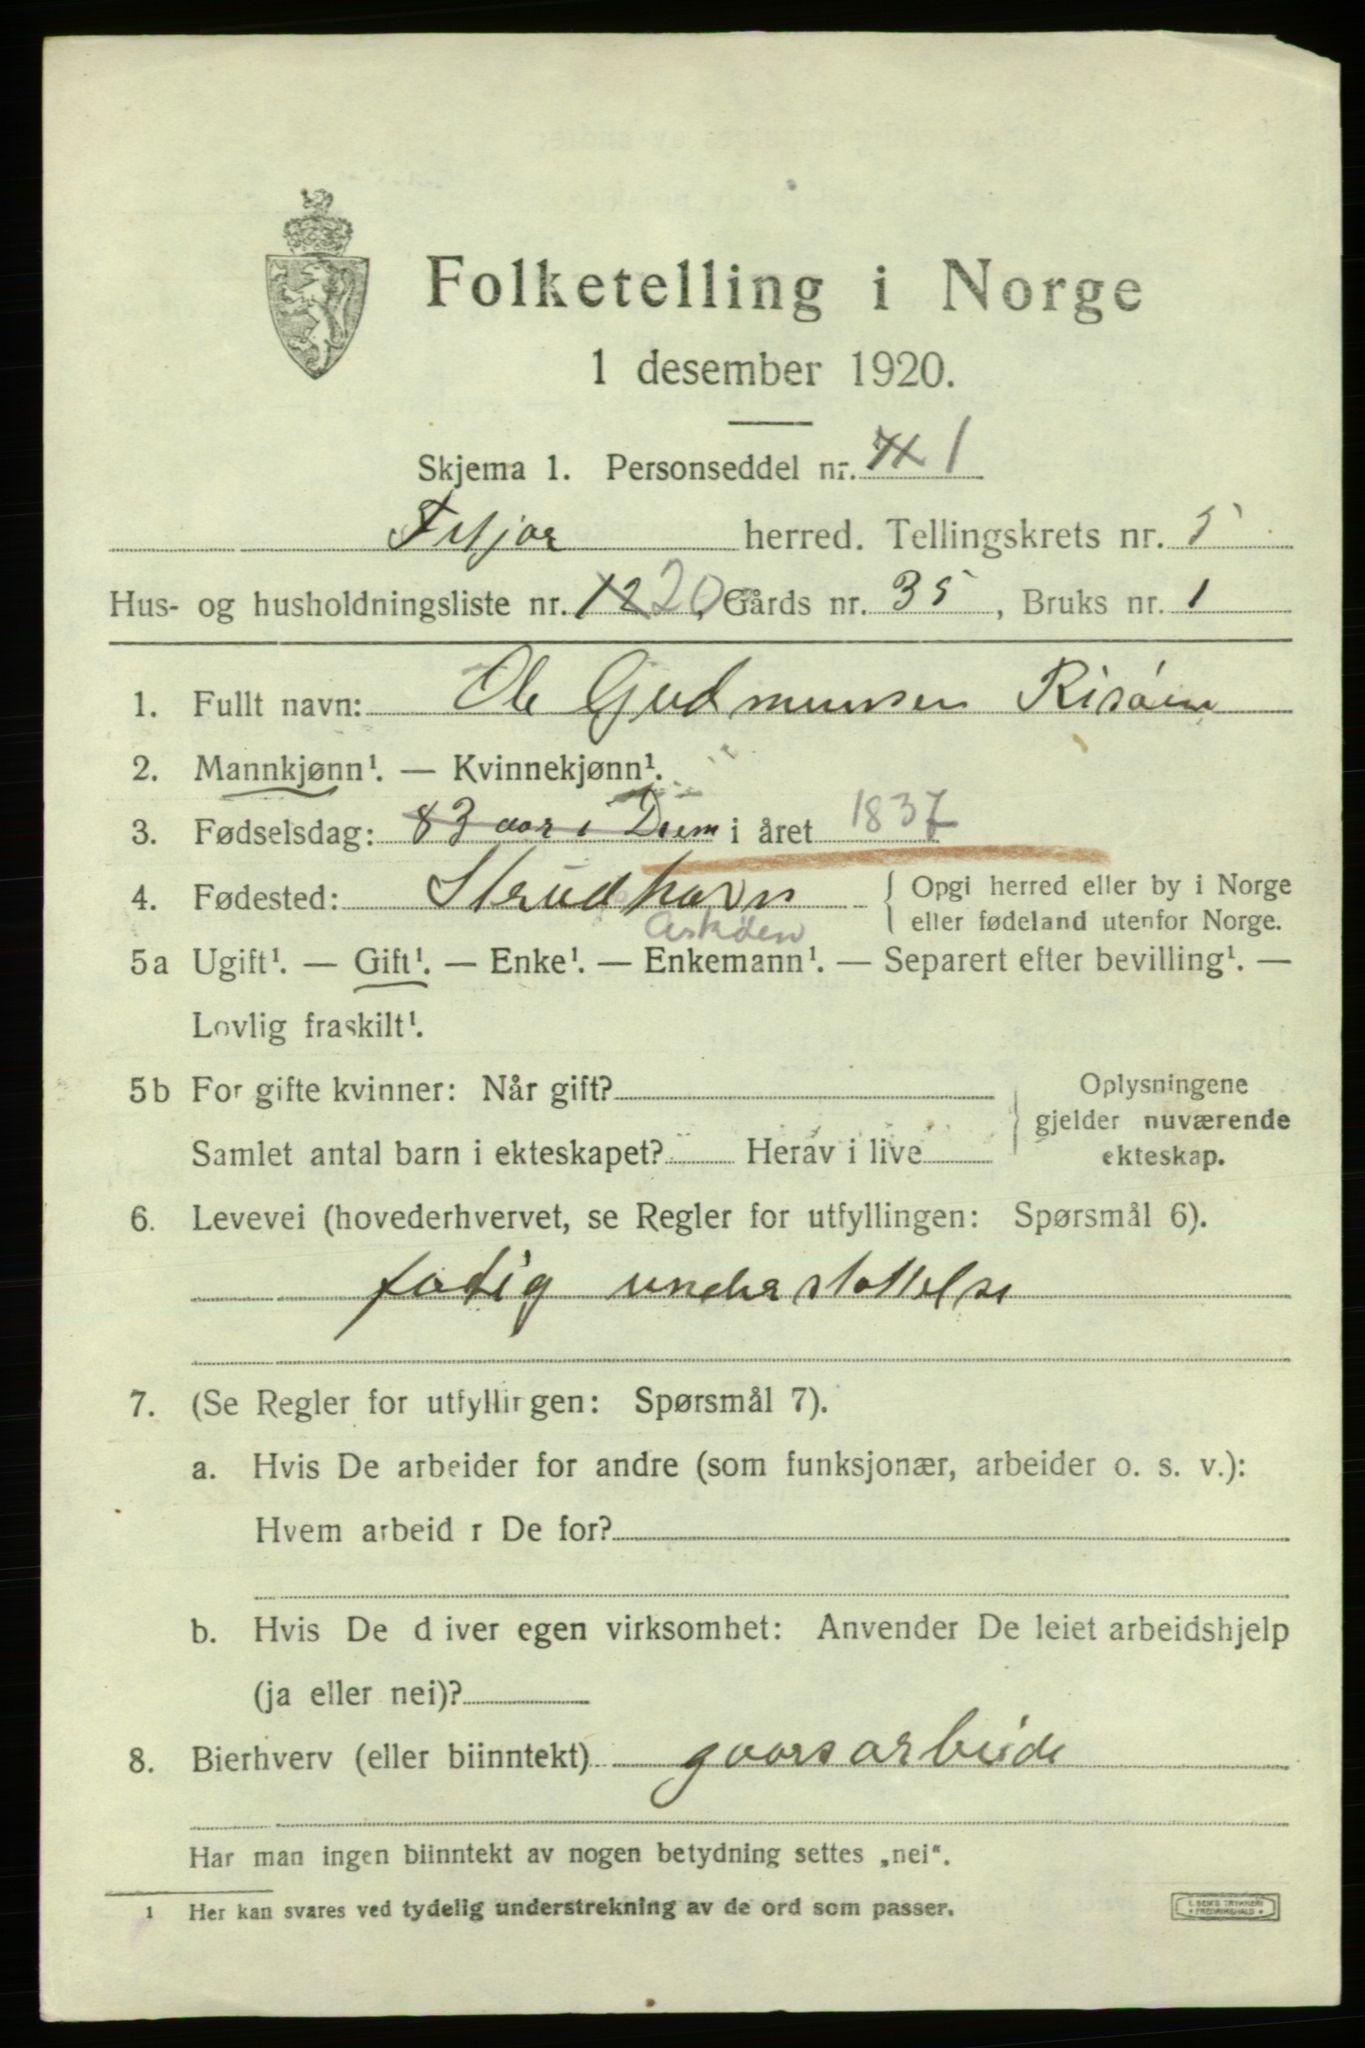 Folketelling i Norge
1 desember 1920.
Skjema 1. Personseddel nr. 1
Fitjar herred. Tellingskrets nr. 5
Hus- og husholdningsliste nr. 12 20, Gårds nr. 35, Bruks nr. 1
1. Fullt navn: Ole Gudmunsen Risöen
2. Mannkjønn¹. — Kvinnekjønn¹.
3. Fødselsdag: 83 aar i Dsem i året 1837
4. Fødested: Strudhavn { Opgi herred eller by i Norge
eller fødeland utenfor Norge.
Asköen
5a Ugift¹. — Gift¹. — Enke¹. — Enkemann¹. — Separert efter bevilling¹. —
Lovlig fraskilt¹.
5b For gifte kvinner: Når gift? Oplysningene
gjelder nuværende
Samlet antal barn i ekteskapet? Herav i live ekteskap.
6. Levevei (hovederhvervet, se Regler for utfyllingen: Spørsmål 6).
fatig understøttelse
7. (Se Regler for utfyllingen: Spørsmål 7).
a. Hvis De arbeider for andre (som funksjonær, arbeider o. s. v.):
Hvem arbeid r De for?
b. Hvis De d iver egen virksomhet: Anvender De leiet arbeidshjelp
(ja eller nei)?
8. Bierhverv (eller biinntekt) gaarsarbeide
Har man ingen biinntekt av nogen betydning settes „nei".
1 Her kan svares ved tydelig understrekning av de ord som passer.